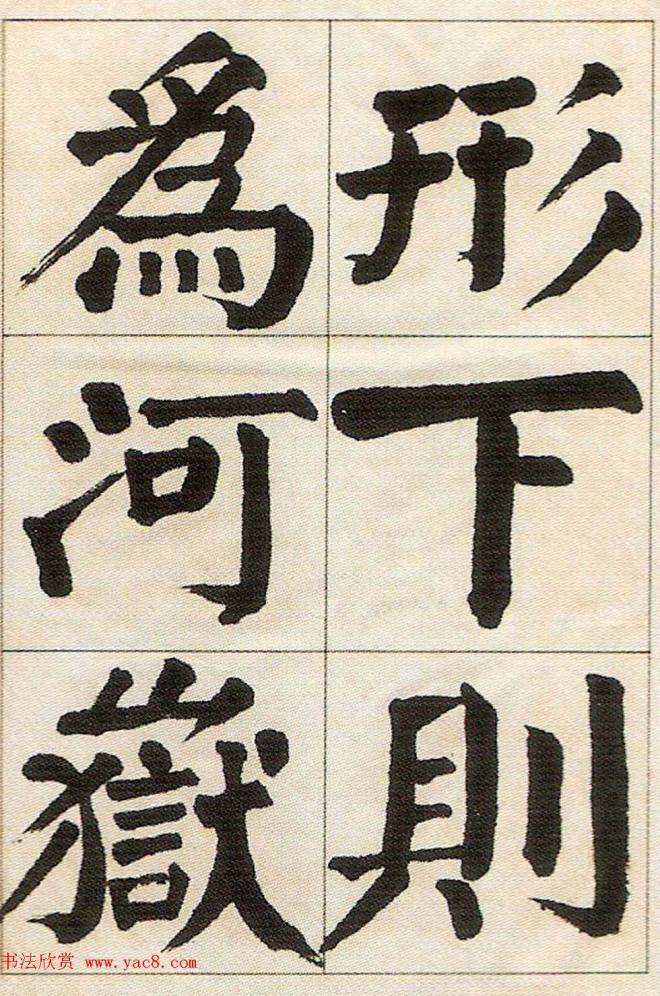 形下則
為河嶽
书法欣赏 www.yac8.com